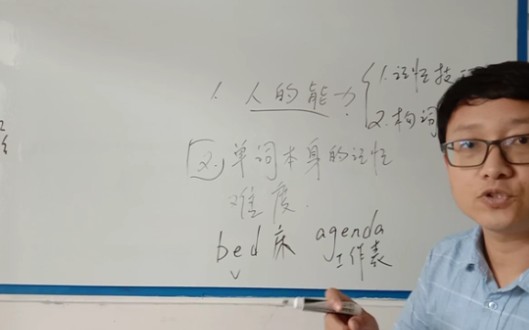 1. 人的能力 1.记忆技
2.构词
2. 单词本身的记忆
难度.
bed 床 agenda
工作表